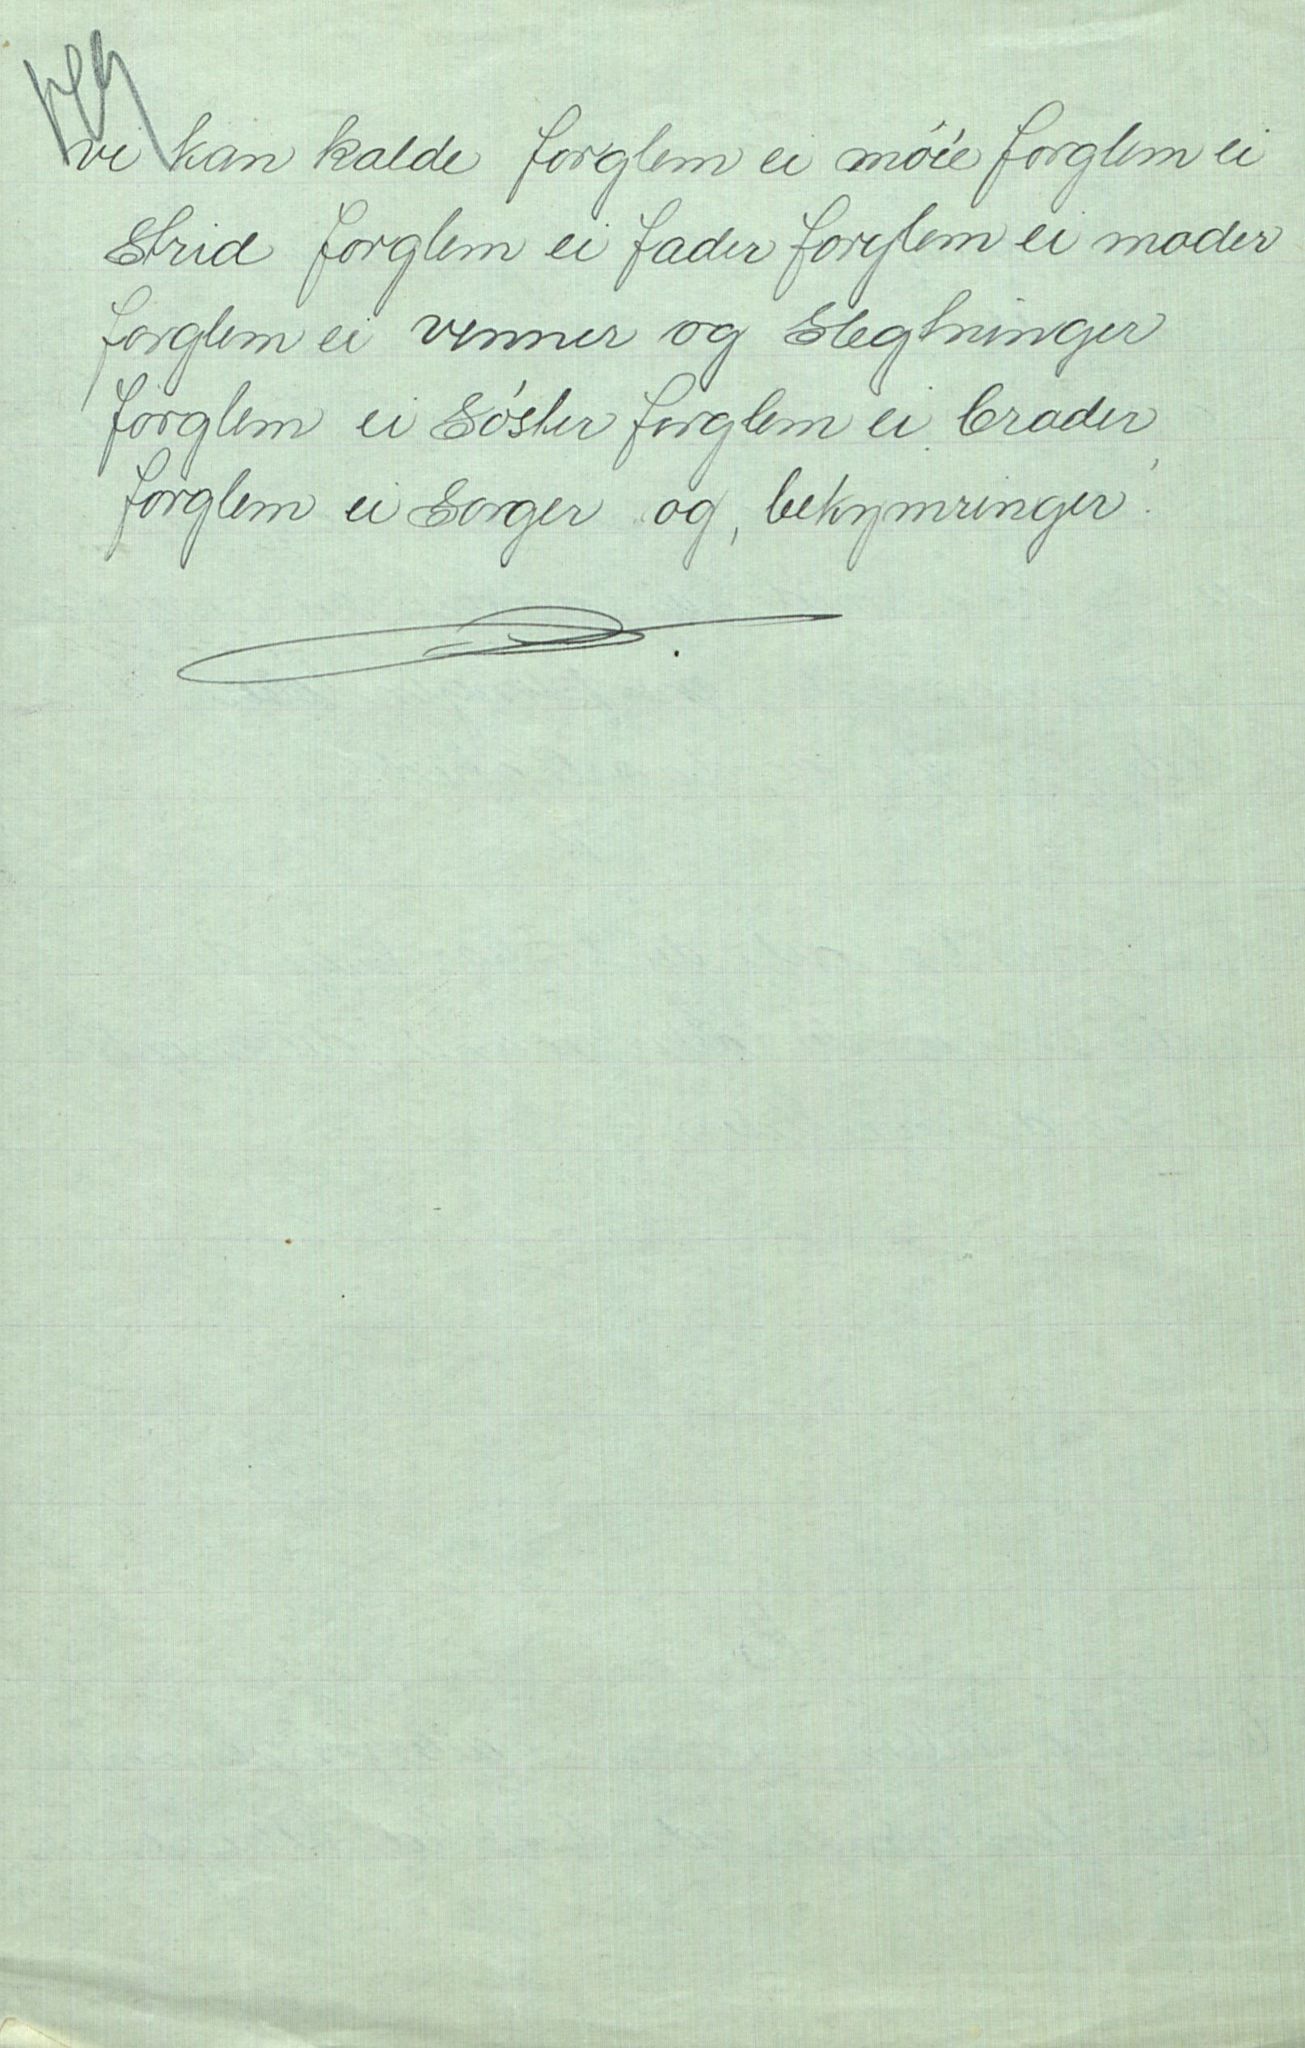 vi kan kalde forglem ei möie forglem ei
Strid forglem ei fader forglem ei moder
forglem ei venner og Slegtninger
forglem ei Söster forglem ei broder,
forglem ei Sorger og, bekymringer.